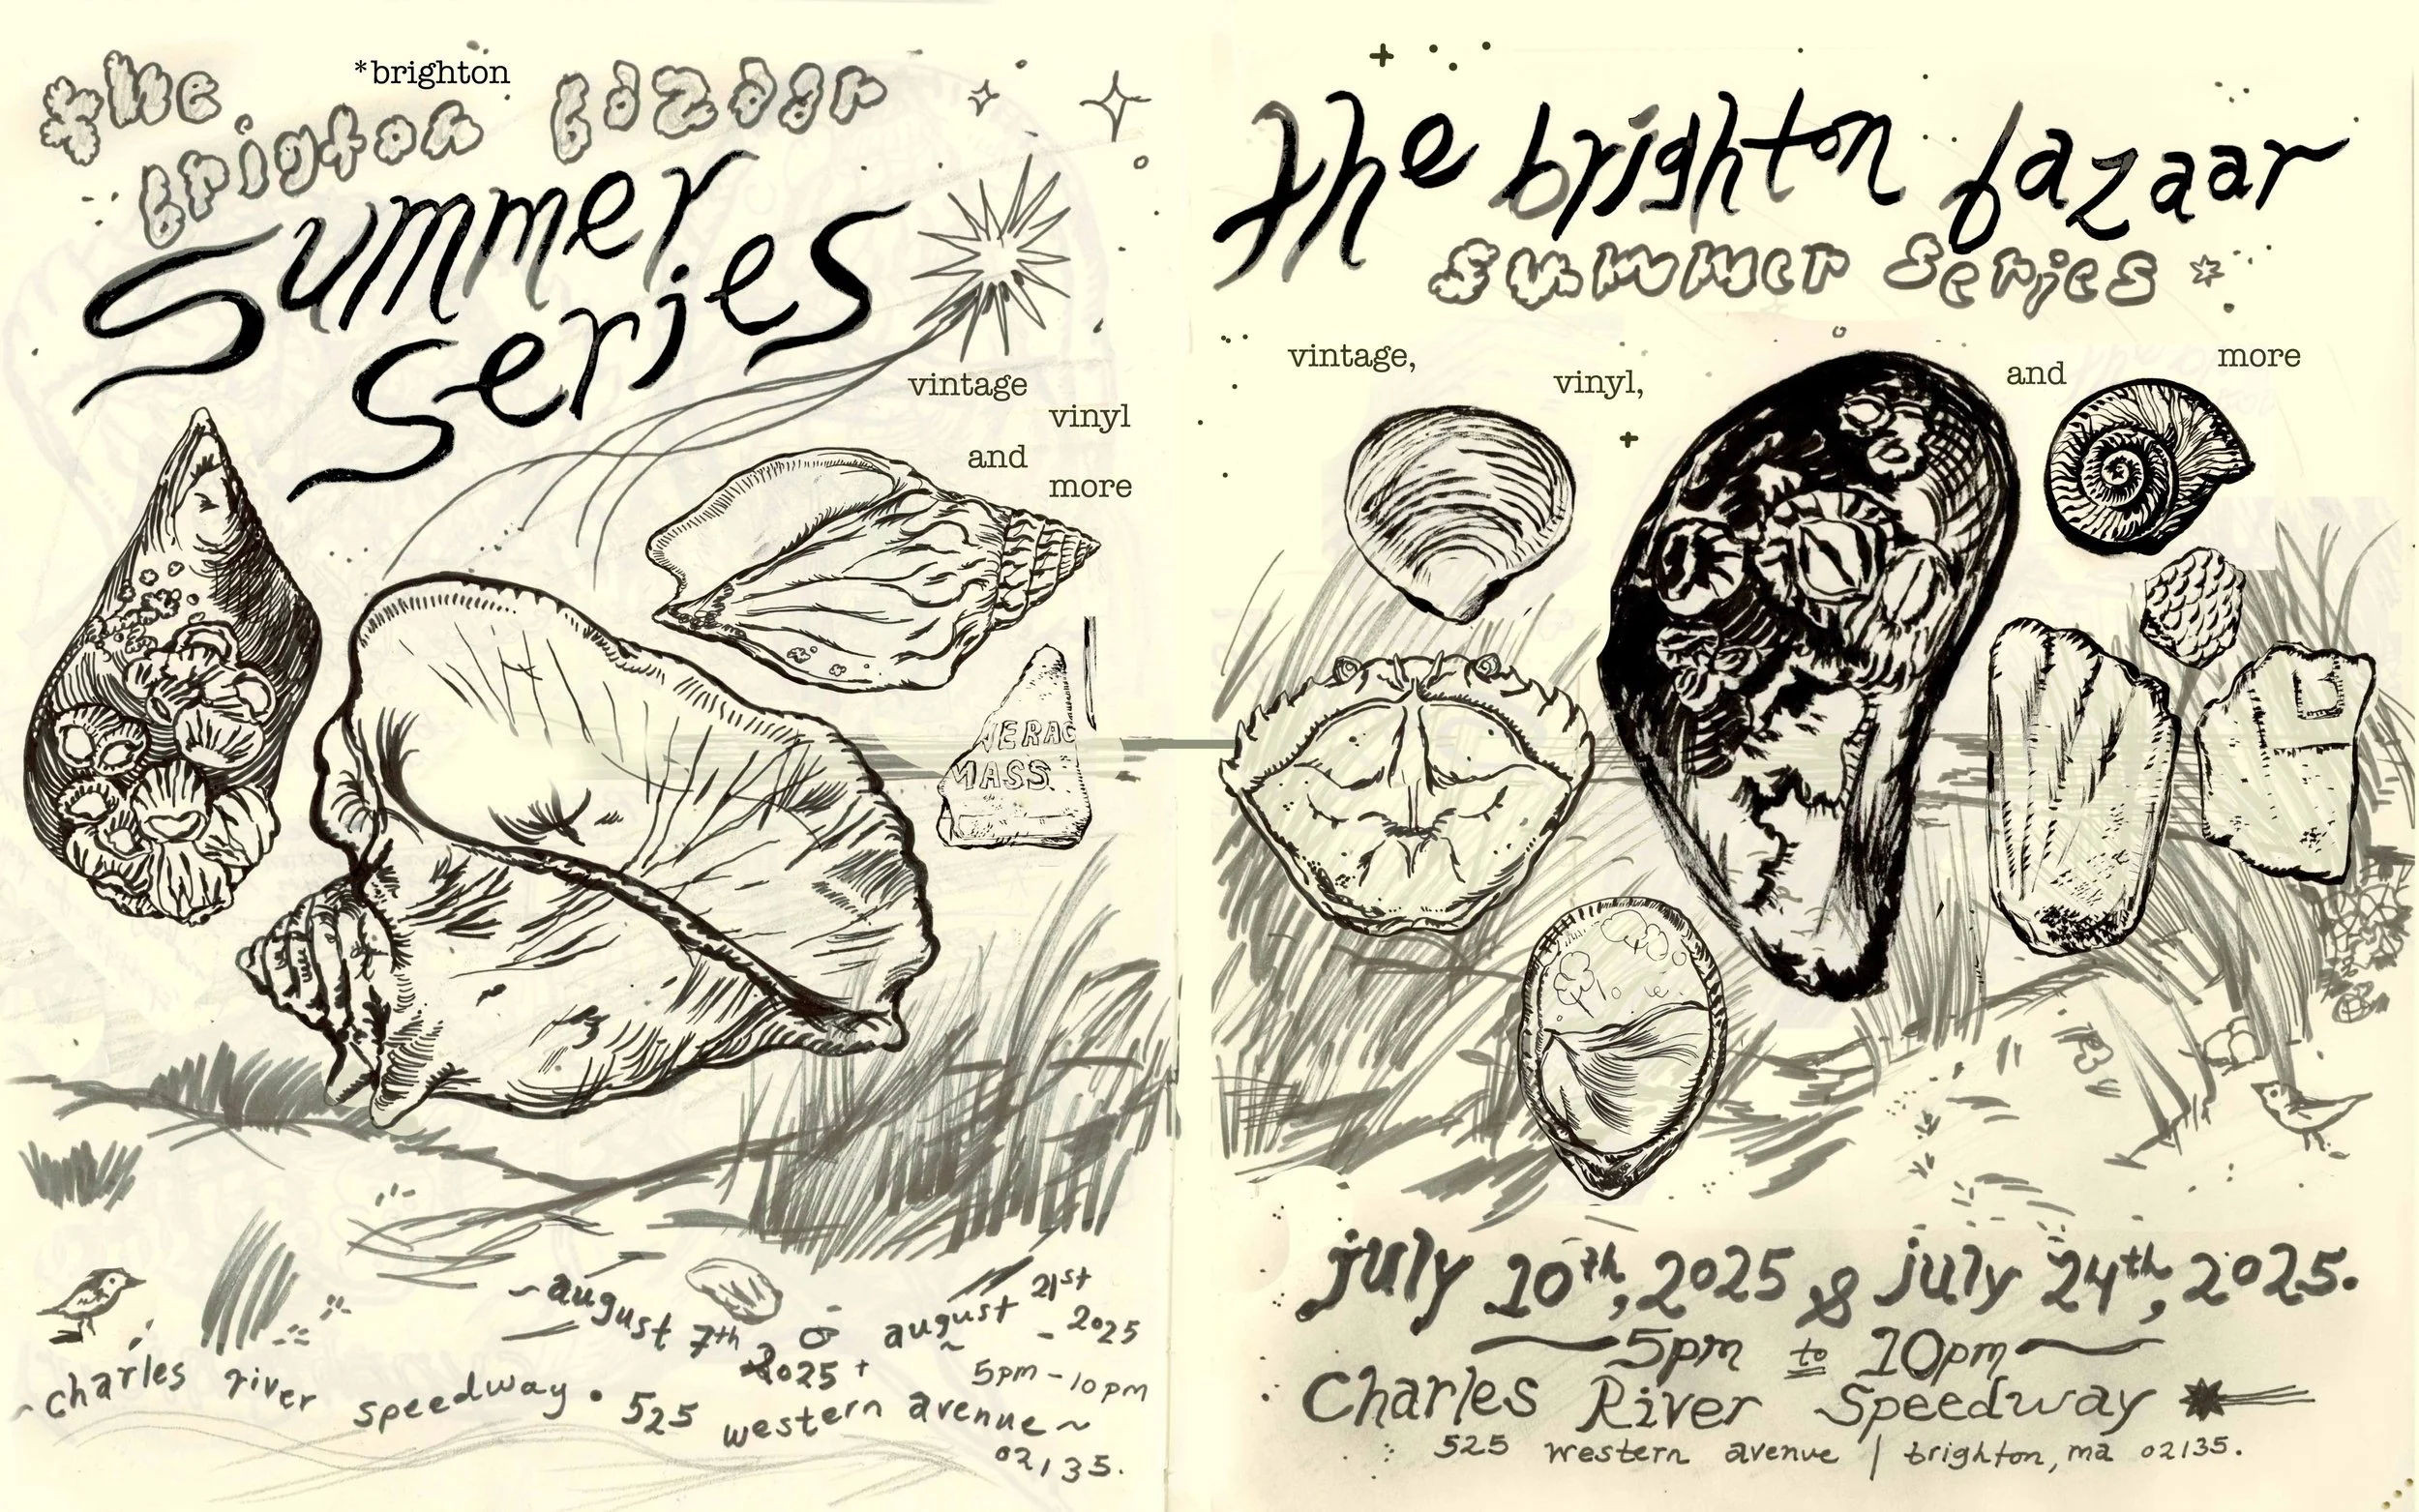 the *brighton
brigton bazaar
summer
series
vintage
vinyl
and
more
VERAG
MASS.
~august 7th 2025 + august 21st - 2025
5pm - 10pm
~charles river speedway • 525 western avenue ~
02135.
the brighton bazaar
summer series *
vintage, vinyl, and more
july 10th, 2025 & july 24th, 2025.
5pm to 10pm
Charles River Speedway
525 western avenue | brighton, ma 02135.